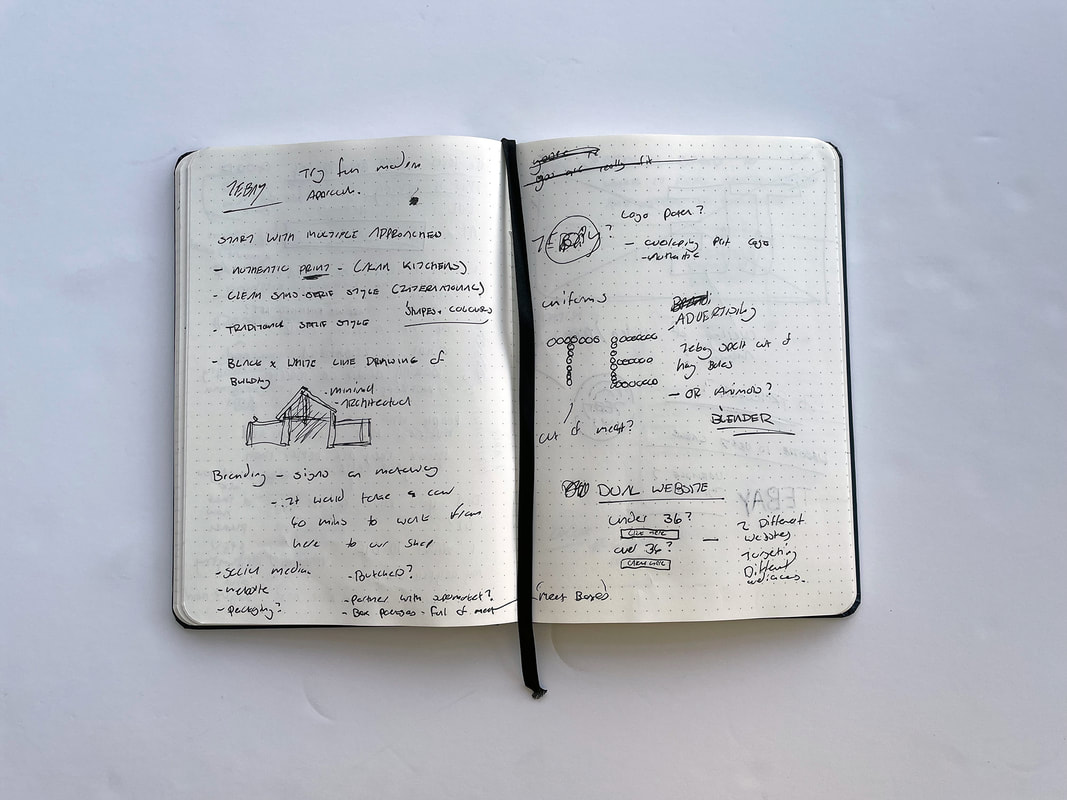 TEBAY
Try fun modern
Approach.
START WITH MULTIPLE APPROACHES
- AUTHENTIC PRINT - (ALAN KITCHENS)
- CLEAN SANS-SERIF STYLE (INTERNATIONAL)
SHAPES + COLOURS
- TRADITIONAL SERIF STYLE
- BLACK x WHITE LINE DRAWING of
BUILDING
- minimal
- Architectural
Branding - signs on motorway
- It would take a cow
40 mins to walk from
here to our shop
- Social media.
- website
- packaging?
- Butchers?
- partner with supermarket?
- Box packages - full of meat
really
Logo
- Authentic
uniforms
ADVERTISING
TE
Tebay spelt out of
hay Bales
- OR Animals?
BLENDER
out of meat?
DUAL WEBSITE
under 36?
CLICK HERE
over 36?
CLICK HERE
2 Different
websites
Targeting
Different
audiences.
(meat Boxes)
EBAY